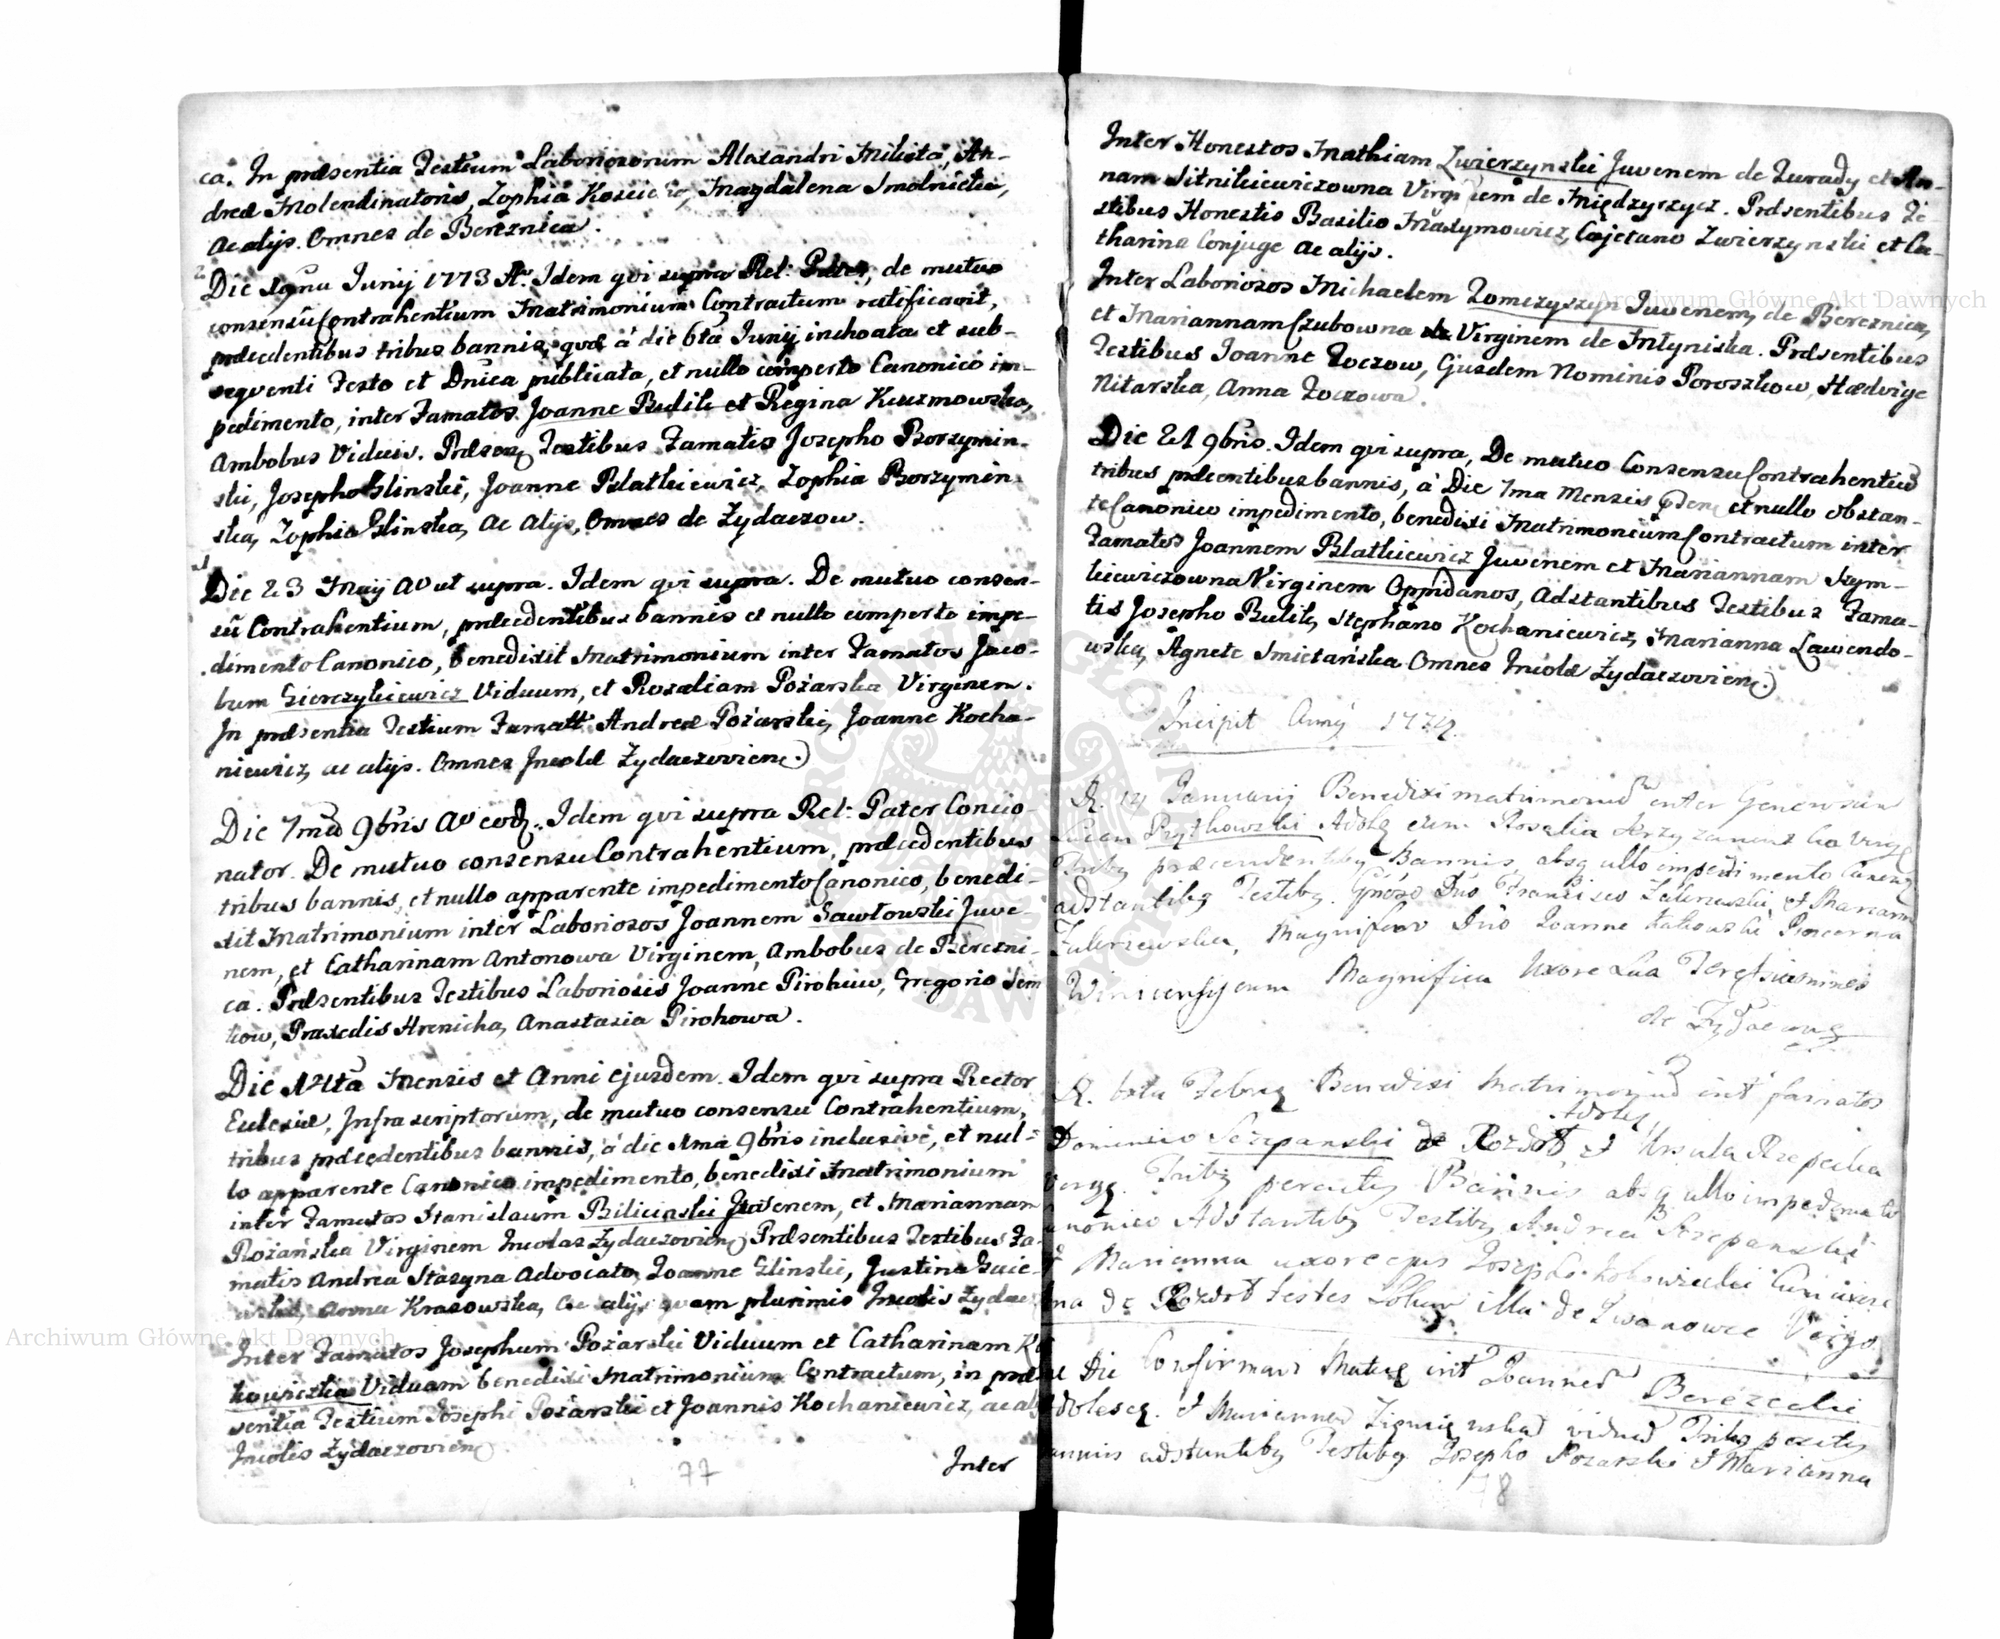 ca. In præsentia Testium Laboriosorum Alexandri Mikita, An-
dreæ Molendinatoris, Zophia Magdalena Smolnicka,
ac alijs. Omnes de Bereznica.
2
Die Junij 1773 Ao. Idem qvi supra Rel: Pater, de mutuo
consensu Contrahentium Matrimonium Contractum ratificavit,
præcedentibus tribus bannis, qvæ à die 6ta Junij inchoata et sub-
seqventi Festo et Dnica publicata, et nullo comperto Canonico im-
pedimento, inter Famatos Joanne Bulik et Regina Kuzmowska,
Ambobus Viduis. Testibus Famatis Josepho Borzymin-
ski, Josepho Glinski, Joanne Platkiewicz, Zophia Borzymin-
ska, Zophia Glinska, ac Alijs, Omnes de Zydaczow.
1
Die 23 Maij Ao ut supra. Idem qvi supra. De mutuo consen-
sũ Contrahentium, præcedentibus bannis et nullo comperto impe-
dimento Canonico, benedixit Matrimonium inter Famatos Jaco-
bum Sierczykiewicz Viduum, et Rosaliam Pozarska Virginem.
In præsentia Testium Famatt Andreæ Pozarski, Joanne Kocha-
niewicz, ac alijs. Omnes Incolæ Zydaczovien:
Die 7ma 9bris Ao eod. Idem qvi supra Rel: Pater Concio-
nator. De mutuo consensu Contrahentium, præcedentibus
tribus bannis, et nullo apparente impedimento Canonico, benedi-
xit Matrimonium inter Laboriosos Joannem Sawłowski Juve-
nem, et Catharinam Antonowa Virginem, Ambobus de Berezni-
ca. Præsentibus Testibus Laboriosis Joanne Pirohiw, Gregorio Sem
kow, Praxedis Hrenicha, Anastasia Pirohowa.
Die Mensis et Anni ejusdem. Idem qvi supra Rector
Eclesiæ, Infra scriptorum, de mutuo consensu Contrahentium,
tribus præcedentibus bannis, à die 9bris inclusivè, et nul-
lo apparente Canonico impedimento, benedixi Matrimonium
inter Famatos Stanislaum Bilicinski Juvenem, et Mariannam
Rożańska Virginem Incolas Zydaczovien: Præsentibus Testibus Fa-
matis Andrea Stasyna Advocato, Joanne Glinski, Justina
Anna Krasowska, ac alijs qvam plurimis Incolis Zydac
Inter Famatos Josephum Pożarski Viduum et Catharinam
Viduam benedixi Matrimonium Contractum, in præ
sentia Testium Josephi Pożarski et Joannis Kochaniewicz, ac alys
Incolis Zydaczovien:
77
Inter
Inter Honestos Mathiam Zwierzynski Juvenem de Zurady et An-
nam Sitnikiewiczowna Virginem de Międzyrzycz. Præsentibus Te-
stibus Honestis Basilio Maxymowicz, Cajetano Zwierzynski et Ca-
tharina Conjuge ac alijs.
Inter Laboriosos Michaelem Tomczyszyn Juvenem, de Bereznica,
et Mariannam Czubowna Virginem de Młyniska. Præsentibus
Testibus Joanne Toczow, Ejusdem Nominis Poroszkow, Hædvige
Nitarska, Anna Toczowa.
Die 21 9bris. Idem qvi supra, De mutuo Consensu Contrahentiũ
tribus præcentibus bannis, à Die 7ma Mensis et nullo obstan-
te Canonico impedimento, benedixi Matrimonium Contractum inter
Famatos Joannem Platkiewicz Juvenem et Mariannam Szym-
kiewiczowna Virginem Oppidanos, Adstantibus Testibus Fama-
tis Josepho Bulik, Stephano Kochaniewicz, Marianna Lawendo-
wska, Agnete Smietańska Omnes Incolæ Zydaczovien:
Incipit Anny 1774
14 Januarij Benedixi matrimoniũ inter Generosum
Prytkowski Adole cum Rosalia Virg
Tribq præcendentibq Bannis, absq ullo impedimento Canon
adstantibq Testibq. Gnoso Dno Francisco Zalerzewski, et Mariann
Zalerzewska, Magnifico Dno Joanne
cum Magnifica Uxore sua Teresia omnes
de Zydaczow
6ta Febrq Benedixi Matrimoniũ int famatos
Adoles
Dominico Szczepanski de Rozdoł et Ursula Rzepecka
Virgq. Tribq peractis Bannis absq ullo impedimeto
anonico Adstantibq Testibq Andrea Szczepanski
et Marianna uxore ejus Josepho cum uxore
de Rozdoł testes illa de Iwanowce Virgo
Die Confirmavi Matrq int Joanneũ Berezecki
Adolescq. et Mariannã viduã Tribq peractis
annis adstantibq Testibq Josepho Pozarski et Marianna
78
Archiwum Główne Akt Dawnych
Archiwum Główne Akt Dawnych
ARCHIWUM GŁÓWNE AKT DAWNYCH